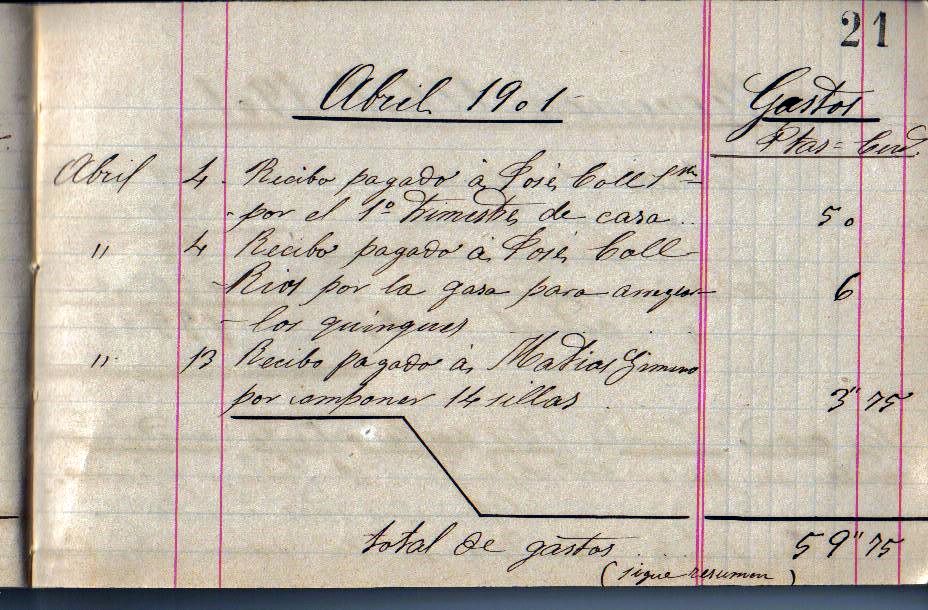 21
Abril 1901
Gastos
Ptas = Cent.
Abril 4 Recibo pagado á José Coll
por el 1º trimestre de casa 50
" 4 Recibo pagado á José Coll
Rios por la gasa para arreglar 6
los quinques
" 13 Recibo pagado á Matias Gimeno
por componer 14 sillas 3" 75
total de gastos 59" 75
(sigue resumen)